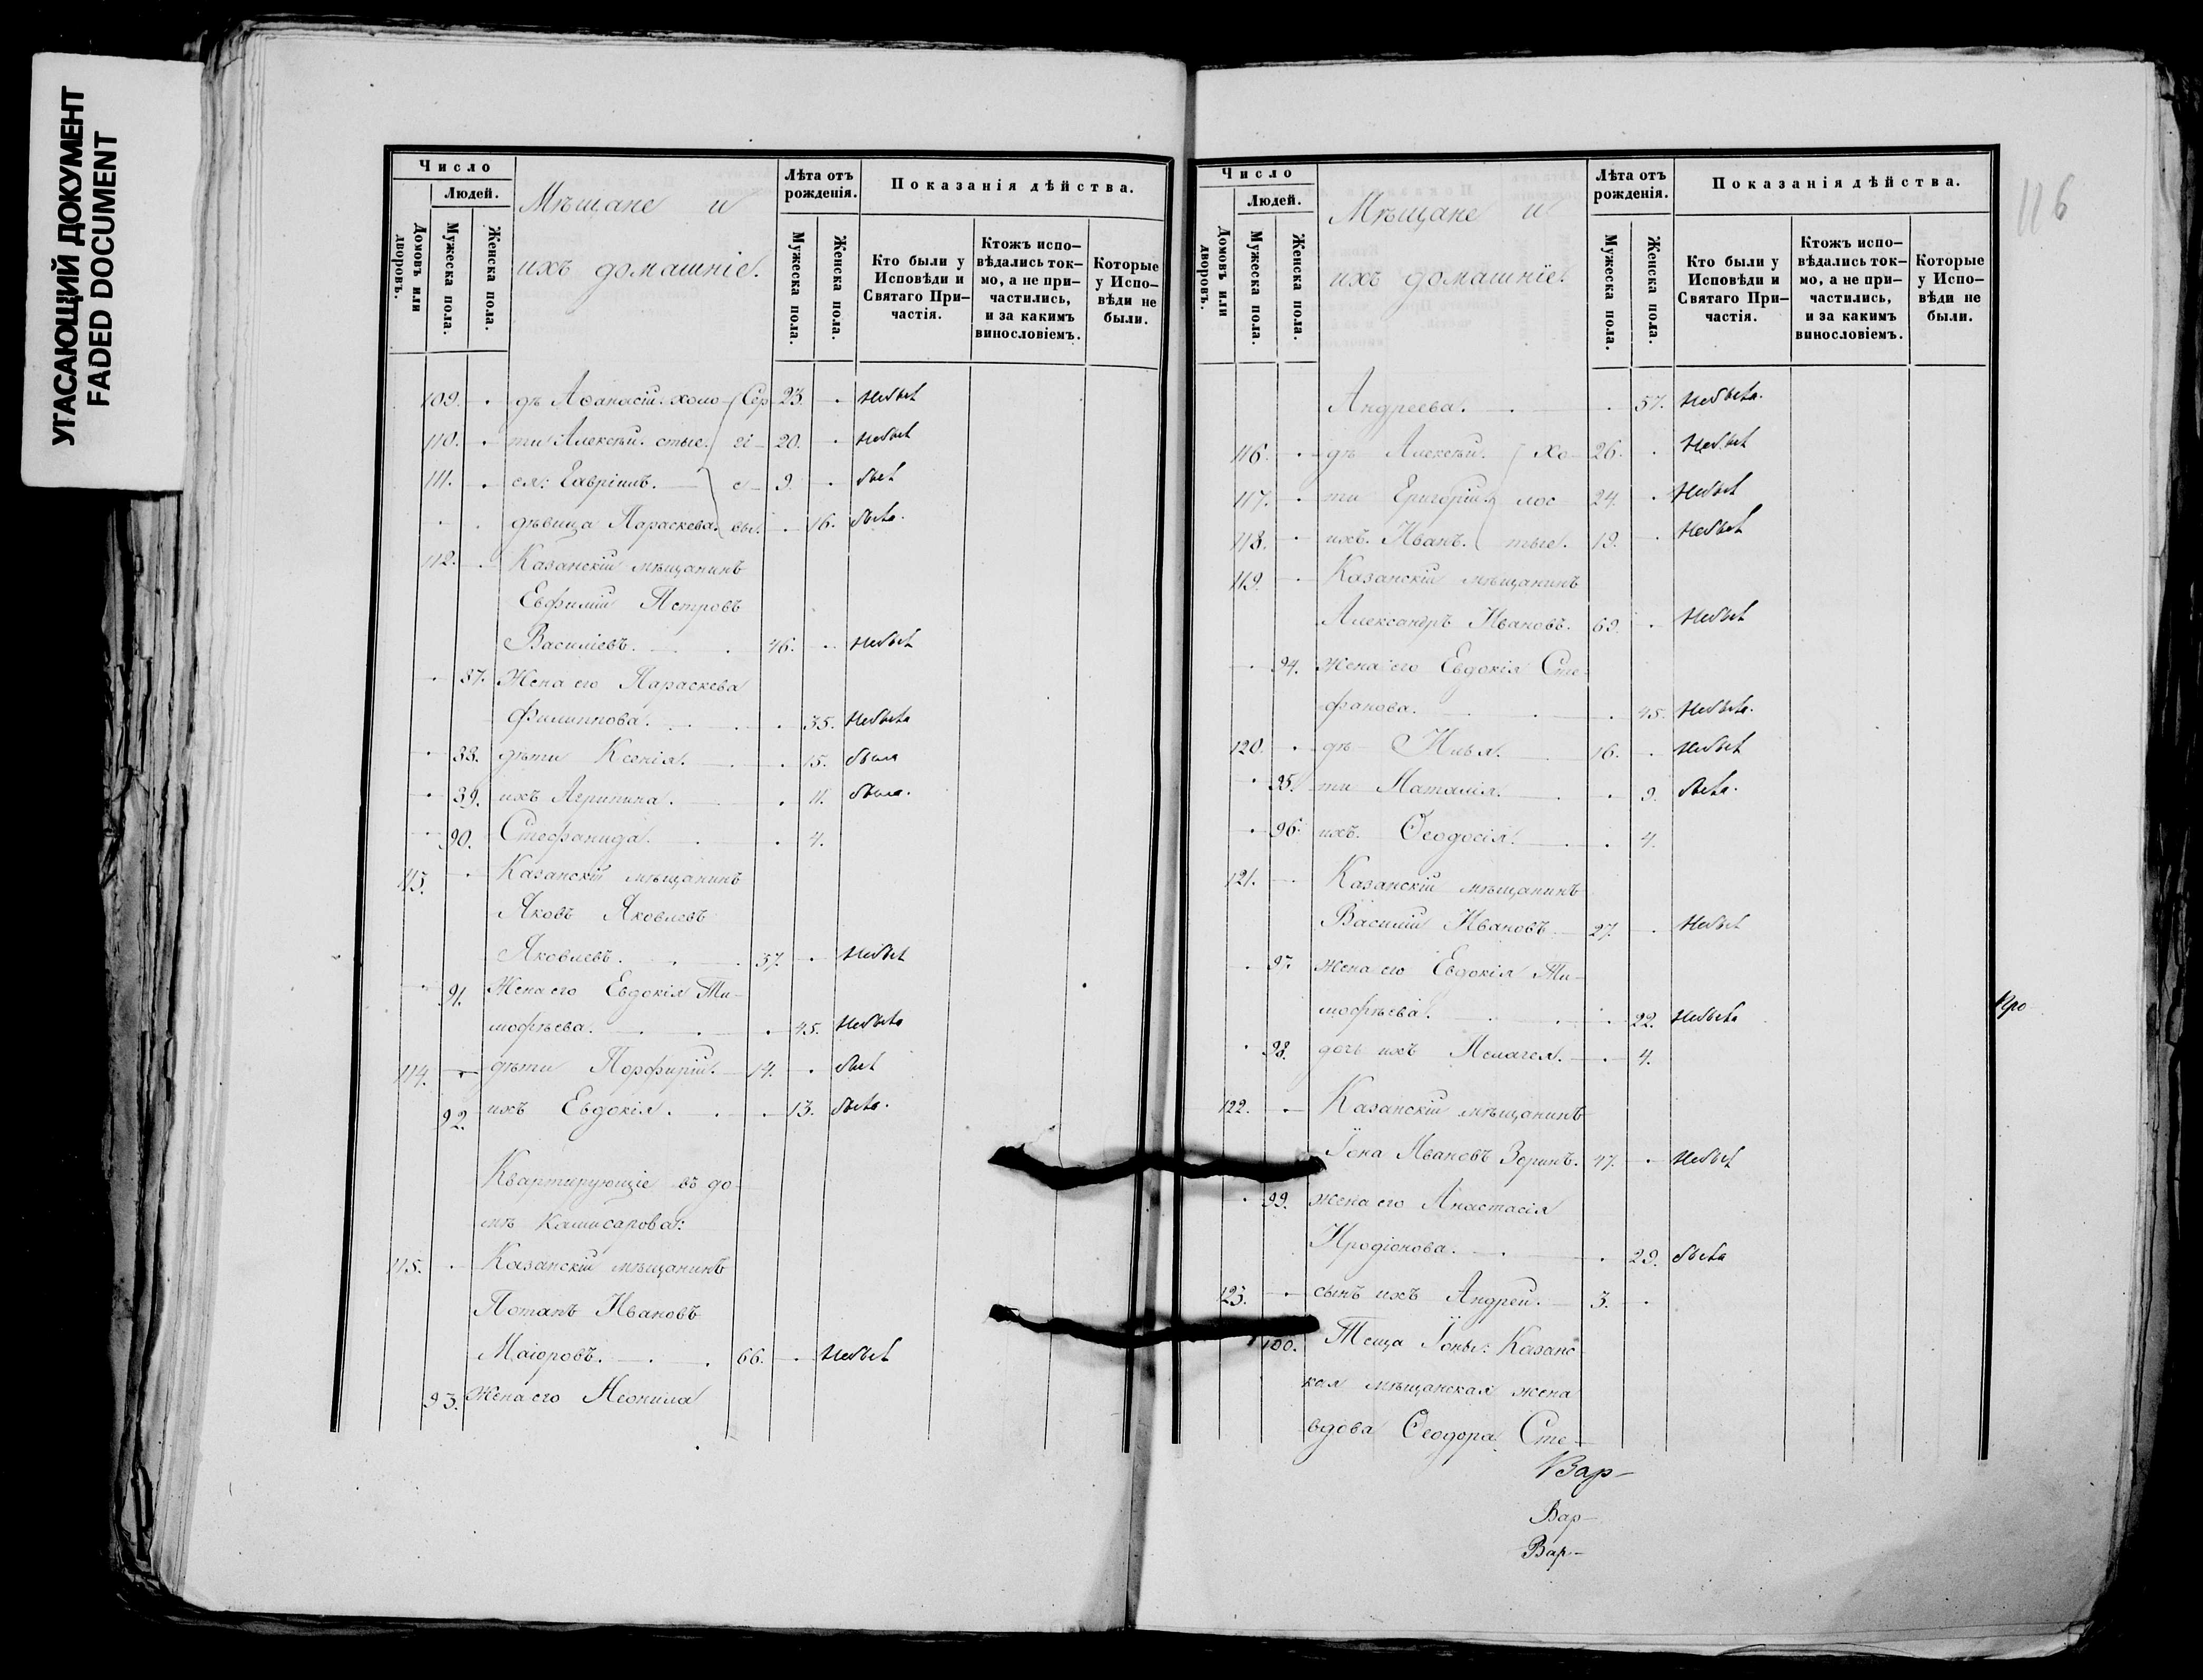 УГАСАЮЩИЙ ДОКУМЕНТ
FADED DOCUMENT
Число
Людей.
Домовъ или дворовъ.
Мужеска пола.
Женска пола.
Мѣщане и
ихъ домашніе.
Лѣта отъ рожденія.
Мужеска пола.
Женска пола.
Показанія дѣйства.
Кто были у Исповѣди и Святаго При-частія.
Ктожъ испо-вѣдались ток-мо, а не при-частились, и за какимъ винословіемъ.
Которые у Испо-вѣди не были.
109. дѣ Аѳанасій. холо- Сер- 23. небылъ
110. ти Алексѣй. стые. 20. небылъ
111. Гавріилъ. 9. былъ
дѣвица Параскева. 16. была.
112. Казанскій мѣщанинъ
Евфимій Петровъ
Василіевъ. 46. небылъ
87. Жена его Параскева
Филиппова. 35. небыла
88. дѣти Ксенія. 15. была
89. ихъ Агрипина. 11. была.
90. Стефанида. 4.
113. Казанскій мѣщанинъ
Яковъ Яковлевъ
Яковлевъ. 57. небылъ
91. Жена его Евдокія Ти-
мофѣева. 45. небыла
114. дѣти Порфирій. 14. былъ
92. ихъ Евдокія. 13. была.
Квартирующіе въ до-
мѣ Камисарова:
115. Казанскій мѣщанинъ
Потапъ Ивановъ
Маіоровъ. 66. небылъ
93. Жена его Неонила
116
Число
Людей.
Домовъ или дворовъ.
Мужеска пола.
Женска пола.
Мѣщане и
ихъ домашніе.
Лѣта отъ рожденія.
Мужеска пола.
Женска пола.
Показанія дѣйства.
Кто были у Исповѣди и Святаго При-частія.
Ктожъ испо-вѣдались ток-мо, а не при-частились, и за какимъ винословіемъ.
Которые у Испо-вѣди не были.
Андреева. 57. небыла.
116. дѣ Алексѣй. Хо- 26. небылъ
117. ти Григорій. лос- 24. небылъ
118. ихъ. Иванъ. тые. 19. небылъ
119. Казанскій мѣщанинъ
Александръ Ивановъ. 69. небылъ
94. Жена его Евдокія Сте-
фанова. 45. небыла.
120. дѣ- Илья. 16. небылъ
95. ти Наталія. 9. была.
96. ихъ. Ѳеодосія. 4.
121. Казанскій мѣщанинъ
Василій Ивановъ 27. небылъ
97. Жена его Евдокія Ти-
мофѣева. 22. небыла
98. дочь ихъ Пелагея. 4.
122. Казанскій мѣщанинъ
Іона Ивановъ Зоринъ. 47. небылъ
99. Жена его Анастасія
Иродіонова. 29. была
123. сынъ ихъ Андрей. 3.
100. Теща Іоны: Казанс-
кая мѣщанская жена
вдова Ѳеодора Сте-
Вар-
Вар-
Вар-